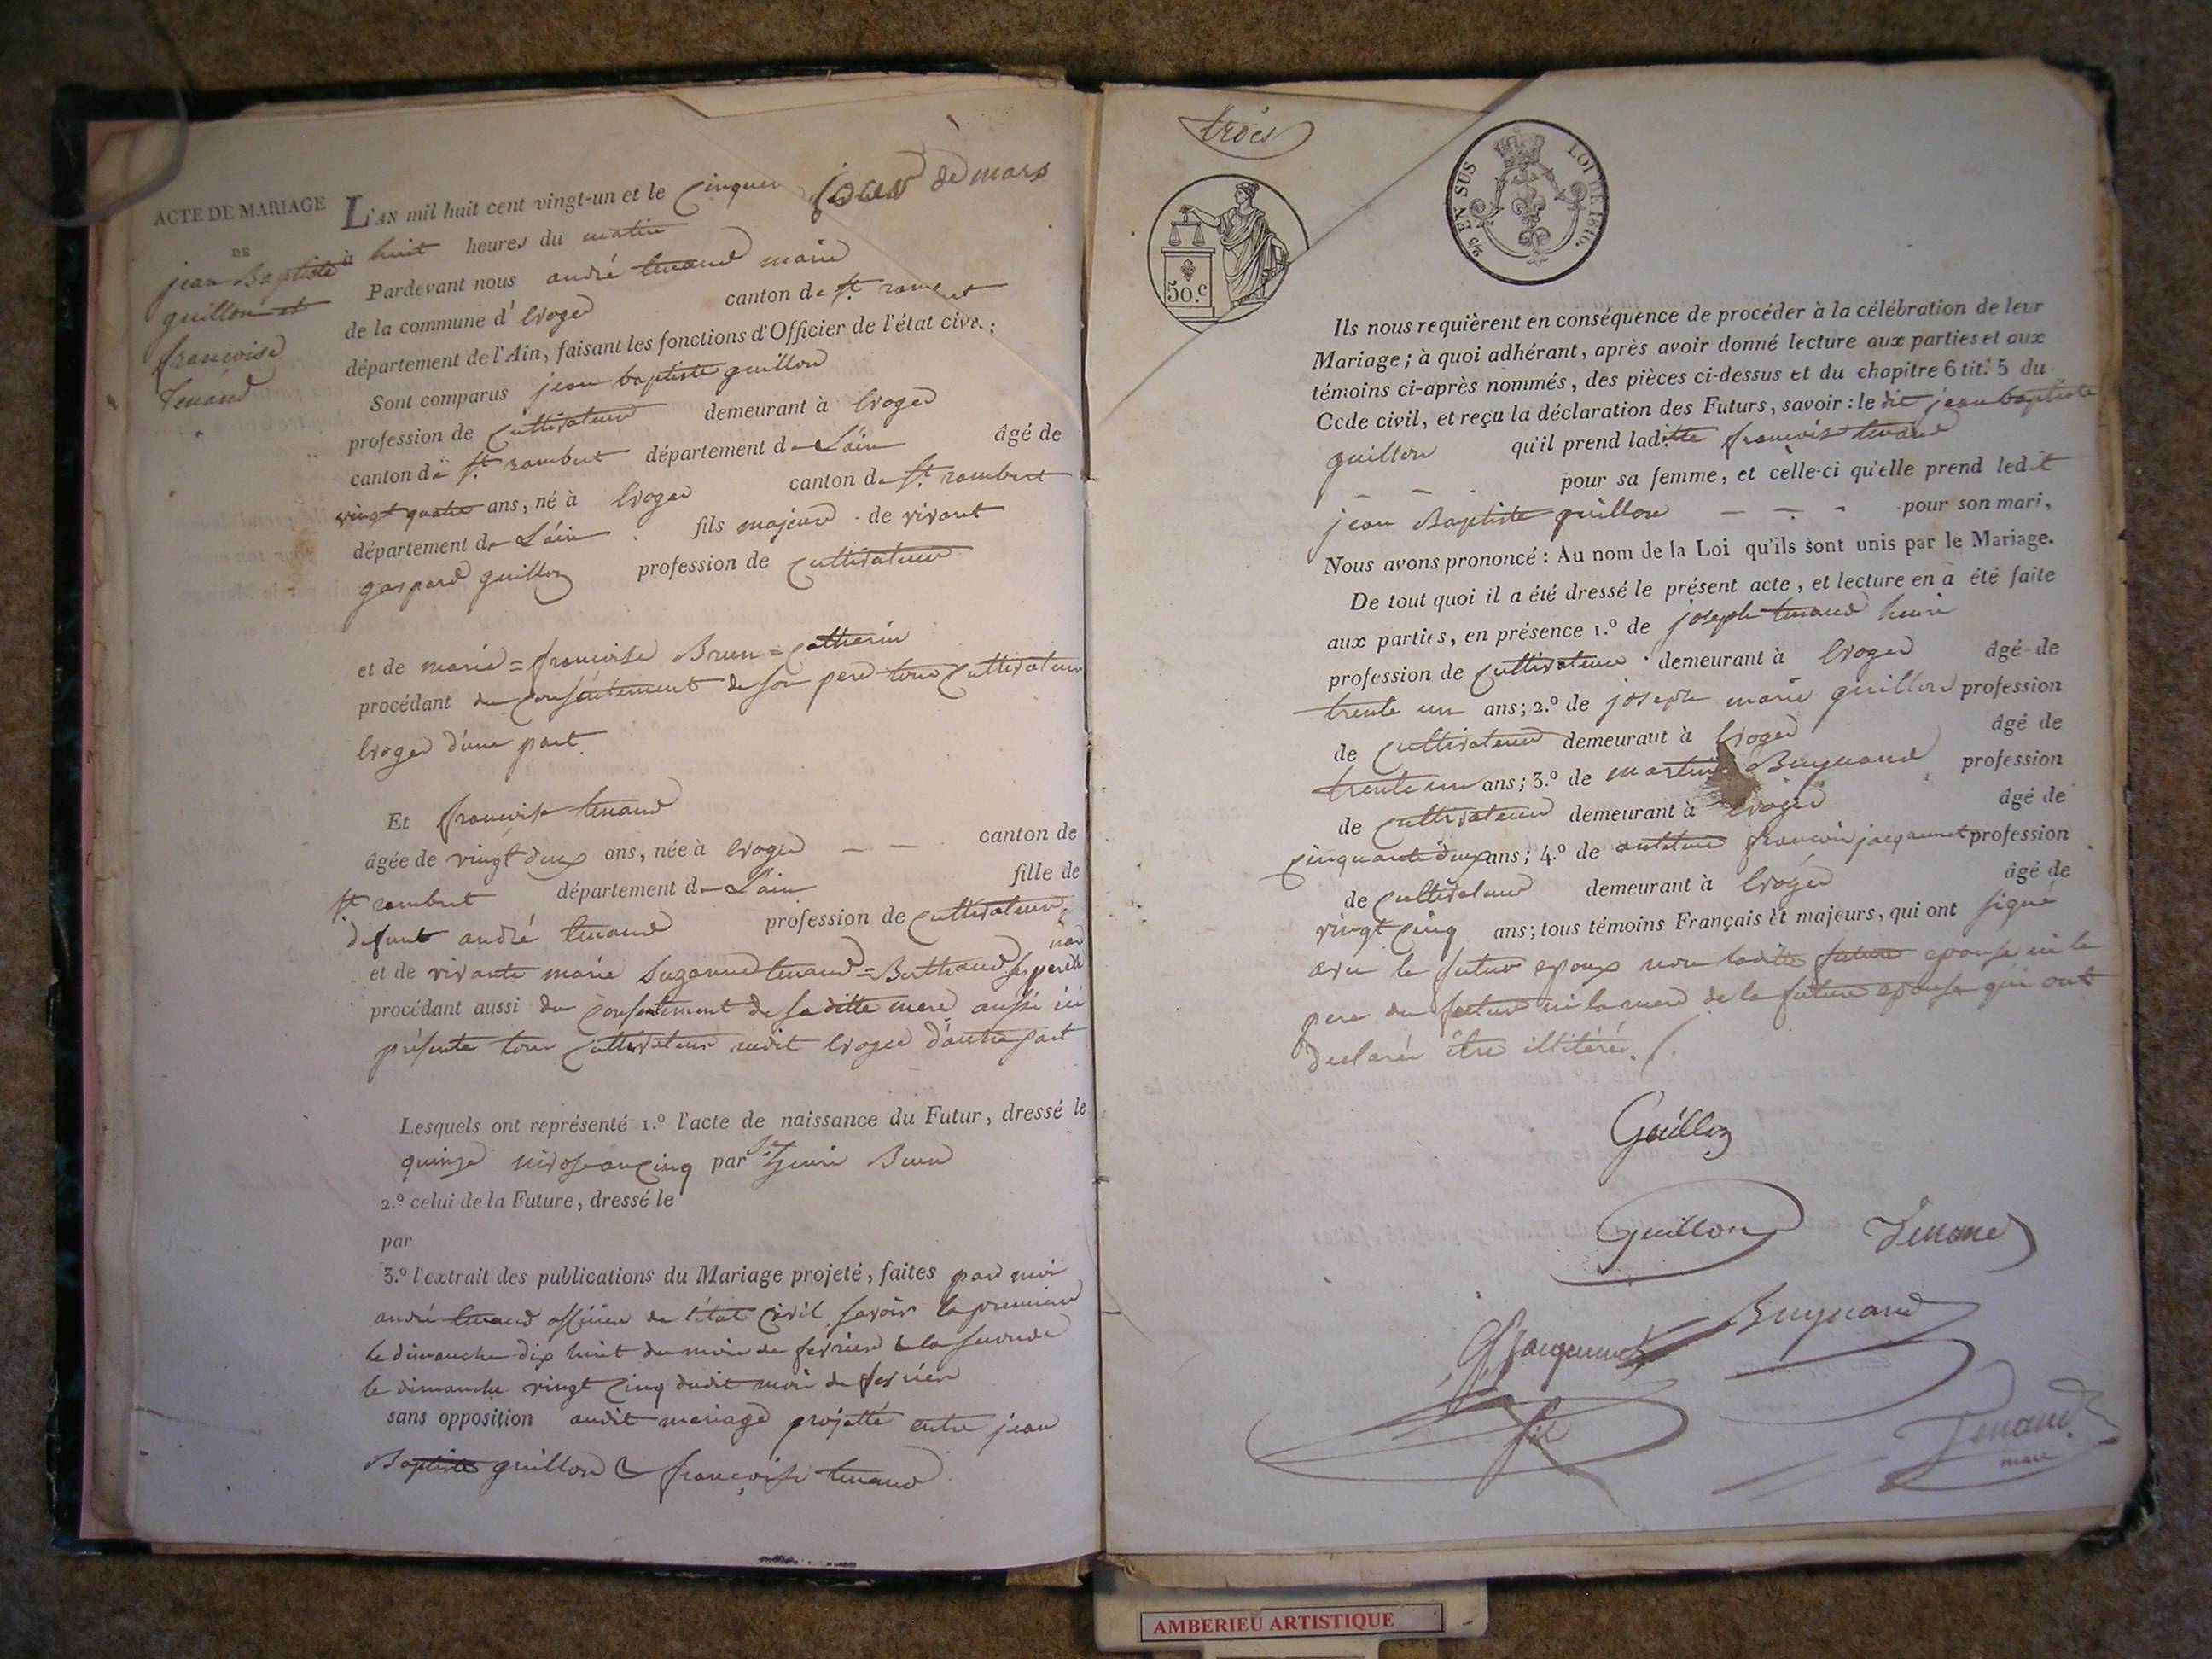 ACTE DE MARIAGE
DE
jean Baptiste
guillon et
francoise
Tenand
L'AN mil huit cent vingt-un et le Cinquen jour de mars
à huit heures du matin
Pardevant nous andré tenand maire
de la commune d' Evoges canton de St. rambert
département de l'Ain, faisant les fonctions d'Officier de l'état civ. ;
Sont comparus jean baptiste guillon
profession de Cultivateur demeurant à Evoges
canton de St. rambert département de L'ain âgé de
vingt quatre ans, né à Evoges canton de St. rambert
département de L'ain fils majeur de vivant
gaspard guillon profession de Cultivateur
et de marie = francoise Brun = Catherin
procédant du Consentement de son pere tous Cultivateurs
Evoges d'une part
Et francoise tenand
âgée de vingt deux ans, née à Evoges canton de
St rambert département de L'ain fille de
défunt andré tenand profession de Cultivateur
et de vivante marie Suzanne tenand = Berthand
procédant aussi du Consentement de sa ditte mere aussi ici
présente tous Cultivateurs audit Evoges d'autre part
Lesquels ont représenté 1.º l'acte de naissance du Futur, dressé le
quinze nivose an Cinq par Henri Brun
2.º celui de la Future, dressé le
par
3.º l'extrait des publications du Mariage projeté, faites par moi
andré tenand officier de l'état Civil savoir la premiere
le dimanche dix huit du mois de fevrier & la seconde
le dimanche vingt Cinq dudit mois de fevrier
sans opposition audit mariage projetté entre jean
Baptiste guillon & françoise tenand
trois
50.c
EN SUS
LOI DE 1816.
Ils nous requièrent en conséquence de procéder à la célébration de leur
Mariage ; à quoi adhérant, après avoir donné lecture aux parties et aux
témoins ci-après nommés, des pièces ci-dessus et du chapitre 6 tit. 5 du
Code civil, et reçu la déclaration des Futurs, savoir : le dit jean baptiste
guillon qu'il prend laditte francoise tenand
pour sa femme, et celle-ci qu'elle prend ledit
jean Baptiste guillon pour son mari,
Nous avons prononcé : Au nom de la Loi qu'ils sont unis par le Mariage.
De tout quoi il a été dressé le présent acte, et lecture en a été faite
aux parties, en présence 1.º de joseph tenand henri
profession de Cultivateur demeurant à Evoges âgé de
trente un ans ; 2.º de joseph marie guillon profession
de Cultivateur demeurant à Evoges âgé de
trente un ans ; 3.º de martin Buynand profession
de Cultivateur demeurant à Evoges âgé de
Cinquante deux ans ; 4.º de francois jacquemet profession
de Cultivateur demeurant à Evoges âgé de
vingt Cinq ans ; tous témoins Français et majeurs, qui ont signé
avec le futur epoux non laditte future epouse ni le
pere du futur ni la mere de la future epouse qui ont
declarér être illitérés.
Guillon
Guillon
Tenand
Jacquemet
fils
Buynand
Tenand
maire
AMBERIEU ARTISTIQUE